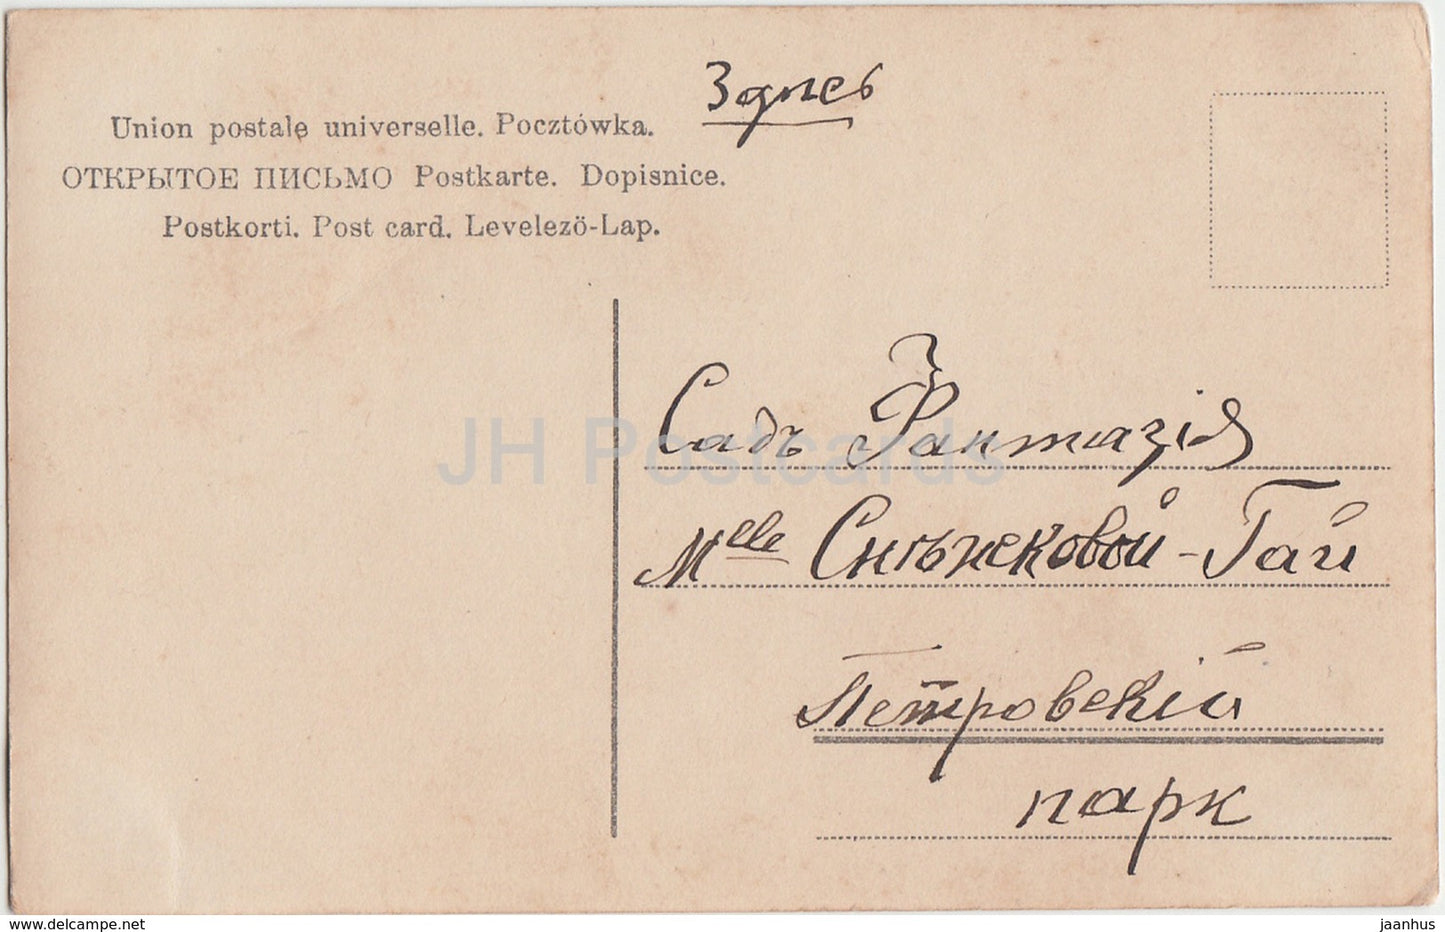 Здесь
Union postale universelle. Pocztówka.
ОТКРЫТОЕ ПИСЬМО Postkarte. Dopisnice.
Postkorti. Post card. Levelező-Lap.
Садъ Фантазія
JH Postcards
Mlle Снѣжковой-Гай
Петровскій
парк
www.delcampe.net
jaanhus